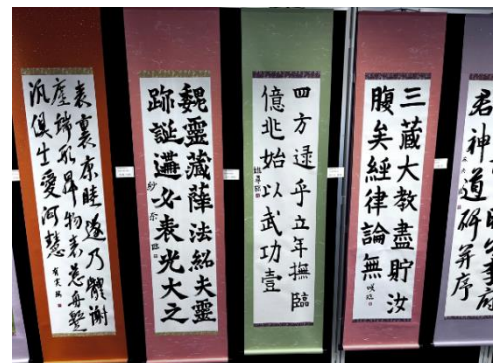 君神道碑并序
三藏大教盡貯汝
腹矣經律論無
四方逯乎立年撫臨
億兆始以武功壹
魏靈藏薛法紹夫靈
跡誕遘必表光大之
表裏遂乃體謝
塵端形昇物表慈舟
俱生愛河慧